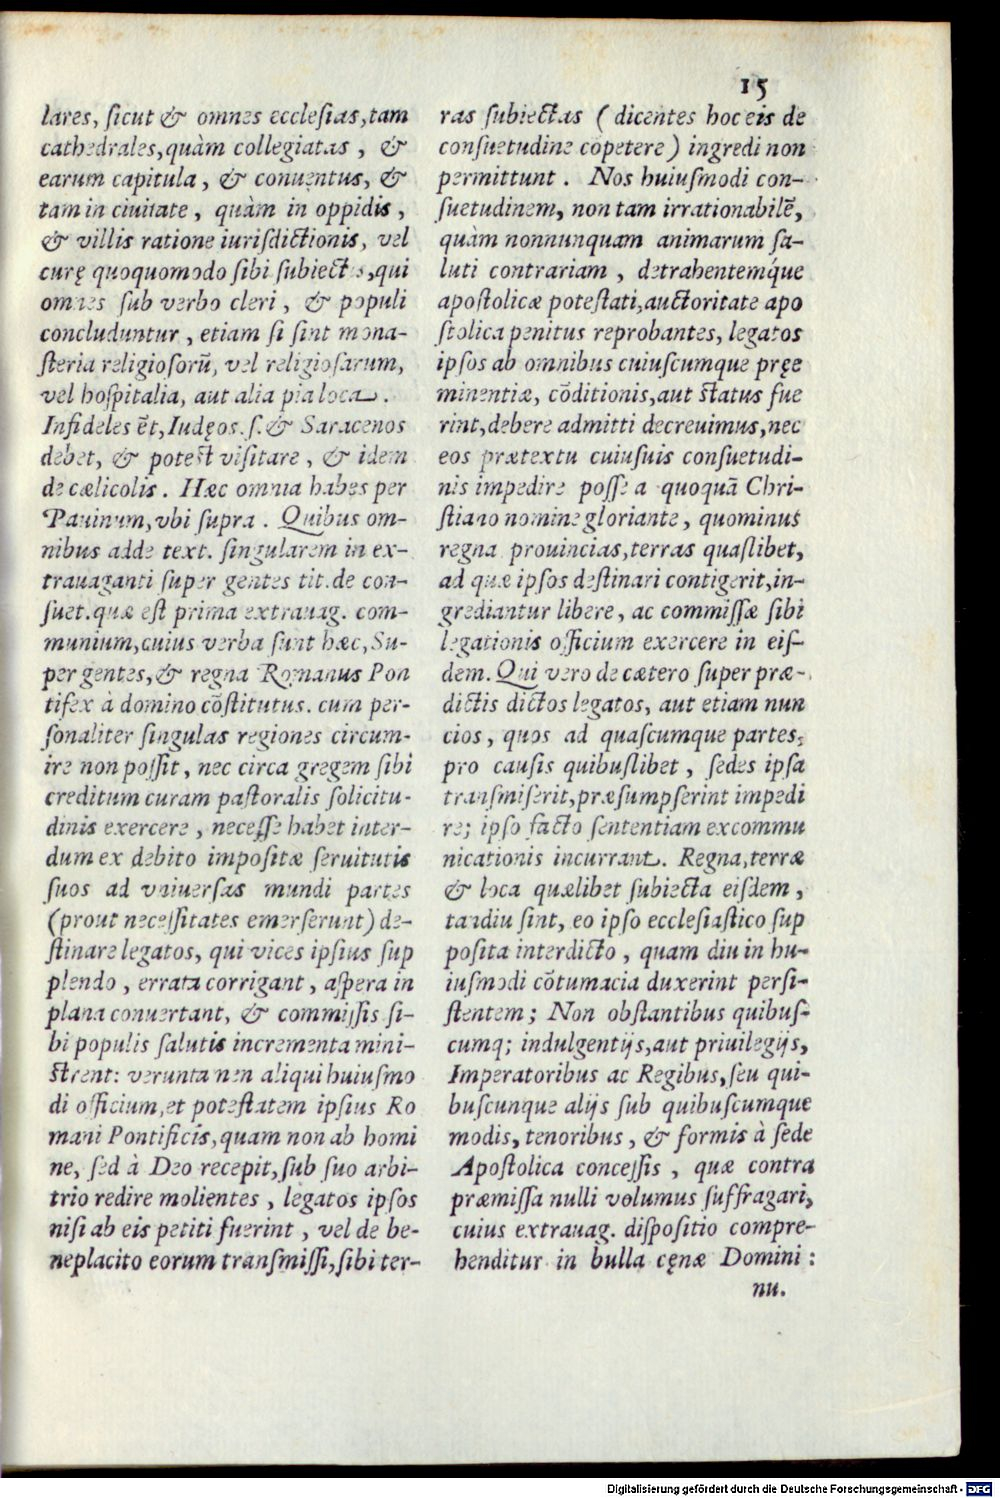 15
lares, ſicut & omnes eccleſias, tam
cathedrales, quàm collegiatas , &
earum capitula , & conuentus, &
tam in ciuitate , quàm in oppidis ,
& villis ratione iuriſdictionis, vel
curę quoquomodo ſibi ſubiectas, qui
omnes ſub verbo cleri , & populi
concluduntur , etiam ſi ſint mona-
ſteria religioſorũ, vel religioſarum,
vel hoſpitalia, aut alia pia loca .
Infideles ẽt, Iudęos. ſ. & Saracenos
debet, & poteſt viſitare , & idem
de cælicolis . Hæc omnia habes per
Pauinum, vbi ſupra . Quibus om-
nibus adde text. ſingularem in ex-
trauaganti ſuper gentes tit. de con-
ſuet. quæ eſt prima extrauag. com-
munium, cuius verba ſunt hæc, Su-
per gentes, & regna Romanus Pon
tifex à domino cõſtitutus. cum per-
ſonaliter ſingulas regiones circum-
ire non poſſit, nec circa gregem ſibi
creditum curam paſtoralis ſolicitu-
dinis exercere , neceſſe habet inter-
dum ex debito impoſitæ ſeruitutis
ſuos ad vniuerſas mundi partes
(prout neceſſitates emerſerunt) de-
ſtinare legatos, qui vices ipſius ſup
plendo , errata corrigant , aſpera in
plana conuertant, & commiſſis ſi-
bi populis ſalutis incrementa mini-
ſtrent: verunta nen aliqui huiuſmo
di officium, et poteſtatem ipſius Ro
mani Pontificis, quam non ab homi
ne, ſed à Deo recepit, ſub ſuo arbi-
trio redire molientes , legatos ipſos
niſi ab eis petiti fuerint , vel de be-
neplacito eorum tranſmiſſi, ſibi ter-
ras ſubiectas ( dicentes hoc eis de
conſuetudine cõpetere ) ingredi non
permittunt . Nos huiuſmodi con-
ſuetudinem, non tam irrationabilẽ,
quàm nonnunquam animarum ſa-
luti contrariam , detrahentemq́ue
apoſtolicæ poteſtati, auctoritate apo
ſtolica penitus reprobantes, legatos
ipſos ab omnibus cuiuſcumque pręe
minentiæ, cõditionis, aut ſtatus fue
rint, debere admitti decreuimus, nec
eos prætextu cuiuſuis conſuetudi-
nis impedire poſſe a quoquã Chri-
ſtiano nomine gloriante , quominus
regna prouincias, terras quaſlibet,
ad quæ ipſos deſtinari contigerit, in-
grediantur libere , ac commiſſæ ſibi
legationis officium exercere in eiſ-
dem. Qui vero de cætero ſuper præ-
dictis dictos legatos, aut etiam nun
cios , quos ad quaſcumque partes,
pro cauſis quibuſlibet , ſedes ipſa
tranſmiſerit, præſumpſerint impedi
re; ipſo facto ſententiam excommu
nicationis incurrant . Regna, terræ
& loca quælibet ſubiecta eiſdem ,
tandiu ſint, eo ipſo eccleſiaſtico ſup
poſita interdicto , quam diu in hu-
iuſmodi cõtumacia duxerint perſi-
ſtentem ; Non obſtantibus quibuſ-
cumq; indulgentijs, aut priuilegijs,
Imperatoribus ac Regibus, ſeu qui-
buſcunque alijs ſub quibuſcumque
modis, tenoribus , & formis à ſede
Apoſtolica conceſſis , quæ contra
præmiſſa nulli volumus ſuffragari,
cuius extrauag. diſpoſitio compre-
henditur in bulla cęnæ Domini :
nu.
Digitalisierung gefördert durch die Deutsche Forschungsgemeinschaft - DFG